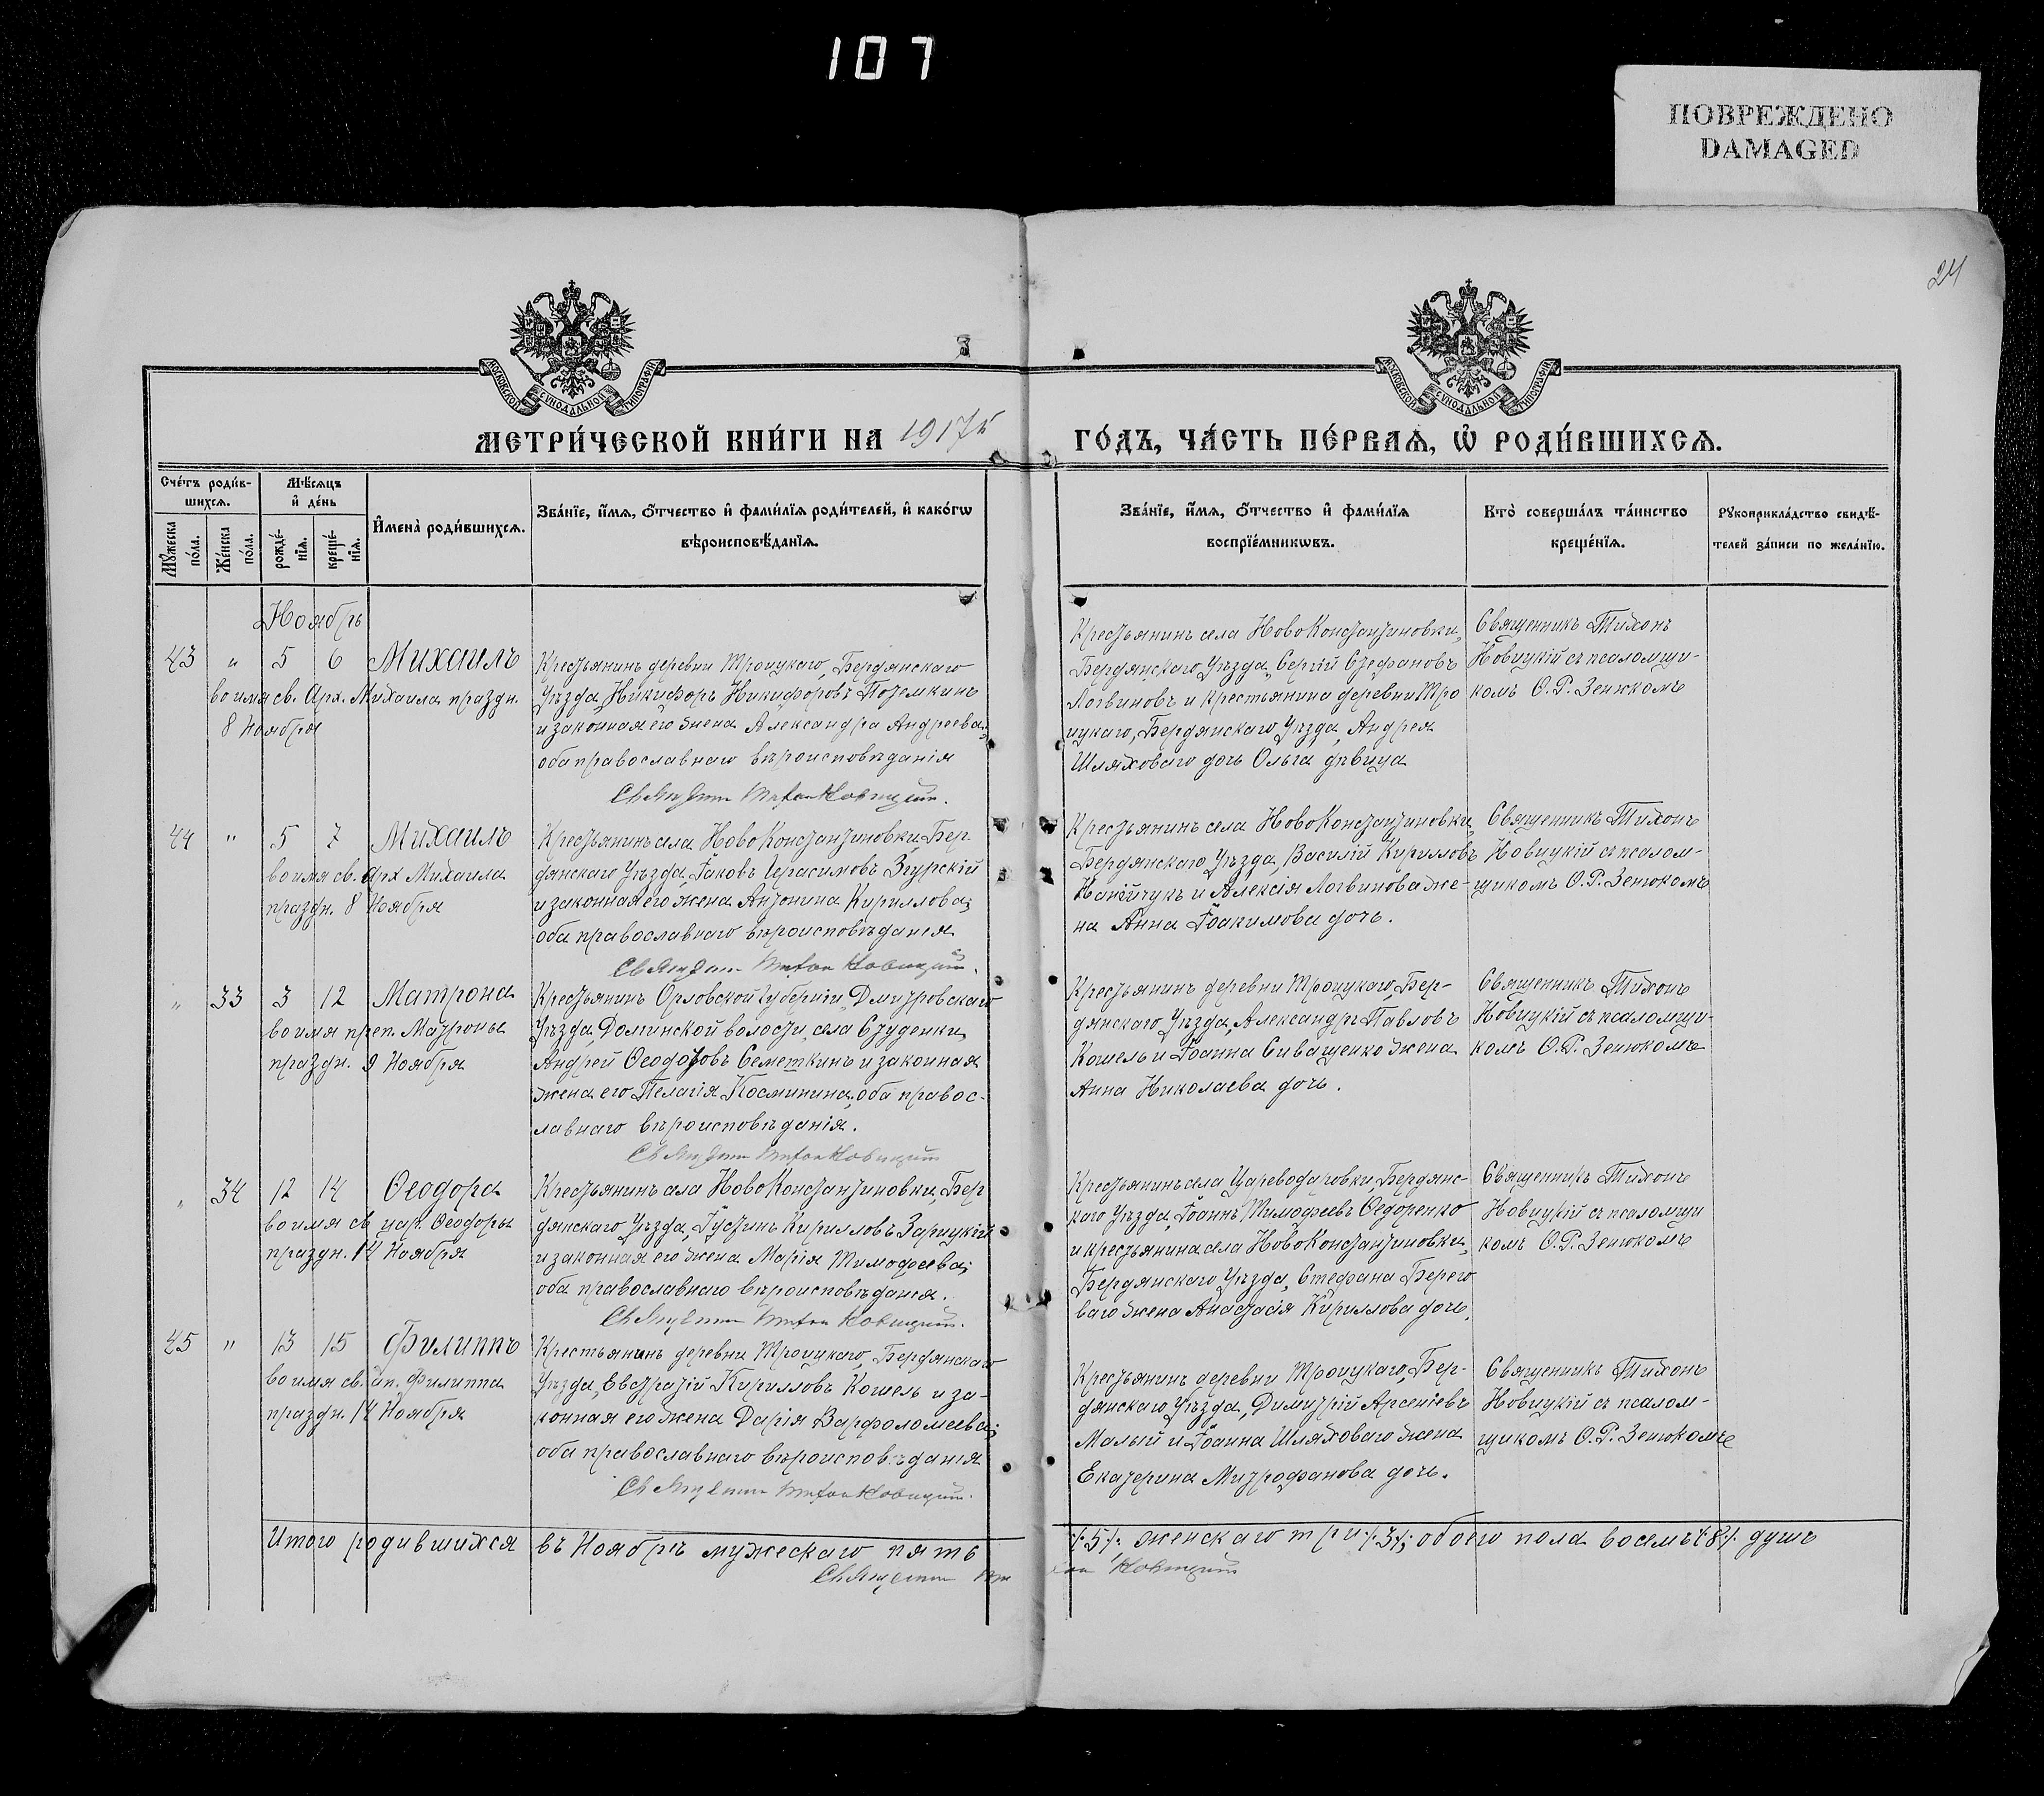 107
ПОВРЕЖДЕНО
DAMAGED
24
МОСКОВСКОЙ СѴНОДАЛЬНОЙ ТИПОГРАФІИ
МОСКОВСКОЙ СѴНОДАЛЬНОЙ ТИПОГРАФІИ
МЕТРИ́ЧЕСКОЙ КНИ́ГИ НА 1917й
ГО́ДЪ, ЧА́СТЬ ПЕ́РВАѦ, Ѡ҆ РОДИ́ВШИХСѦ.
Сче́тъ роди́в-
шихсѧ.
Мꙋ́жеска по́ла.
Же́нска по́ла.
Мѣ́сѧцъ
и҆ де́нь
рожде́-нїѧ.
креще́-нїѧ.
И҆мена̀ роди́вшихсѧ.
Зва́нїе, и҆́мѧ, ѻ҆́тчество и҆ фами́лїѧ роди́телей, и҆ како́гѡ
вѣроисповѣ́данїѧ.
Зва́нїе, и҆́мѧ, ѻ҆́тчество и҆ фами́лїѧ
воспрїе́мникѡвъ.
Кто̀ соверша́лъ та́инство
креще́нїѧ.
Рꙋкоприкла́дство свидѣ́-
телей за́писи по жела́нїю.
Ноябрь
43 " 5 6 Михаилъ
во имя св. Арх. Михаила праздн.
8 Ноября
Крестьянинъ деревни Троицкаго, Бердянскаго
Уѣзда, Никифоръ Никифоровъ Потемкинъ
и законная его жена Александра Андреева;
оба православнаго вѣроисповѣданія
Священникъ Тихонъ Новицкій.
Крестьянинъ села НовоКонстантиновки,
Бердянскаго Уѣзда, Сергій Стефановъ
Логвиновъ и крестьянина деревни Тро
ицкаго, Бердянскаго Уѣзда, Андрея
Шляховаго дочь Ольга дѣвица
Священникъ Тихонъ
Новицкій съ псаломщи-
комъ Ѳ. Р. Зенюкомъ
44 " 5 7 Михаилъ
во имя св. Арх Михаила
праздн. 8 Ноября
Крестьянинъ села НовоКонстантиновки, Бер
дянскаго Уѣзда, Іаковъ Герасимовъ Згурскій
и законная его жена Антонина Кириллова;
оба православнаго вѣроисповѣданія
Священникъ Тихонъ Новицкій.
Крестьянинъ села НовоКонстантиновки,
Бердянскаго Уѣзда, Василій Кирилловъ
и Алексія Логвинова же-
на Анна Іоакимова дочь.
Священникъ Тихонъ
Новицкій съ псалом-
щикомъ Ѳ. Р. Зенюкомъ
" 33 3 12 Матрона
во имя преп. Матроны
праздн. 9 Ноября
Крестьянинъ Орловской губерніи, Дмитровскаго
Уѣзда, Домнинской волости, села Студенки
Андрей Ѳеодоровъ Семеткинъ и законная
жена его Пелагія Косминина, оба правос-
лавнаго вѣроисповѣданія.
Священникъ Тихонъ Новицкій
Крестьянинъ деревни Троицкаго, Бер-
дянскаго Уѣзда, Александръ Павловъ
Кошель и Іоанна Сиващенко жена
Анна Николаева дочь.
Священникъ Тихонъ
Новицкій съ псаломщи-
комъ Ѳ. Р. Зенюкомъ
" 34 12 14 Ѳеодора
во имя св. цар. Ѳеодоры
праздн. 14 Ноября
Крестьянинъ села НовоКонстантиновки, Бер
дянскаго Уѣзда, Іустинъ Кирилловъ Зарицкій
и законная его жена Марія Тимофеева;
оба православнаго вѣроисповѣданія.
Священникъ Тихонъ Новицкій.
Крестьянинъ села Цареводаровки, Бердянс-
каго Уѣзда, Іоаннъ Тимофеевъ Ѳедоренко
и крестьянина села НовоКонстантиновки,
Бердянскаго Уѣзда, Стефана Берего
ваго жена Анастасія Кириллова дочь.
Священникъ Тихонъ
Новицкій съ псаломщи
комъ Ѳ. Р. Зенюкомъ
45 " 13 15 Филиппъ
во имя св. ап. Филиппа
праздн. 14 Ноября
Крестьянинъ деревни Троицкаго, Бердянскаго
Уѣзда, Евстратій Кирилловъ Кошель и за-
конная его жена Дарія Варфоломеева;
оба православнаго вѣроисповѣданія
Священникъ Тихонъ Новицкій.
Крестьянинъ деревни Троицкаго, Бер-
дянскаго Уѣзда, Димитрій Арсеніевъ
Малый и Іоанна Шляховаго жена
Екатерина Митрофанова дочь.
Священникъ Тихонъ
Новицкій съ псалом-
щикомъ Ѳ. Р. Зенюкомъ
Итого родившихся въ Ноябрѣ мужескаго пять ⁒5⁒ женскаго три ⁒3⁒; обоего пола восемь ⁒8⁒ душъ
Священникъ Тихонъ Новицкій